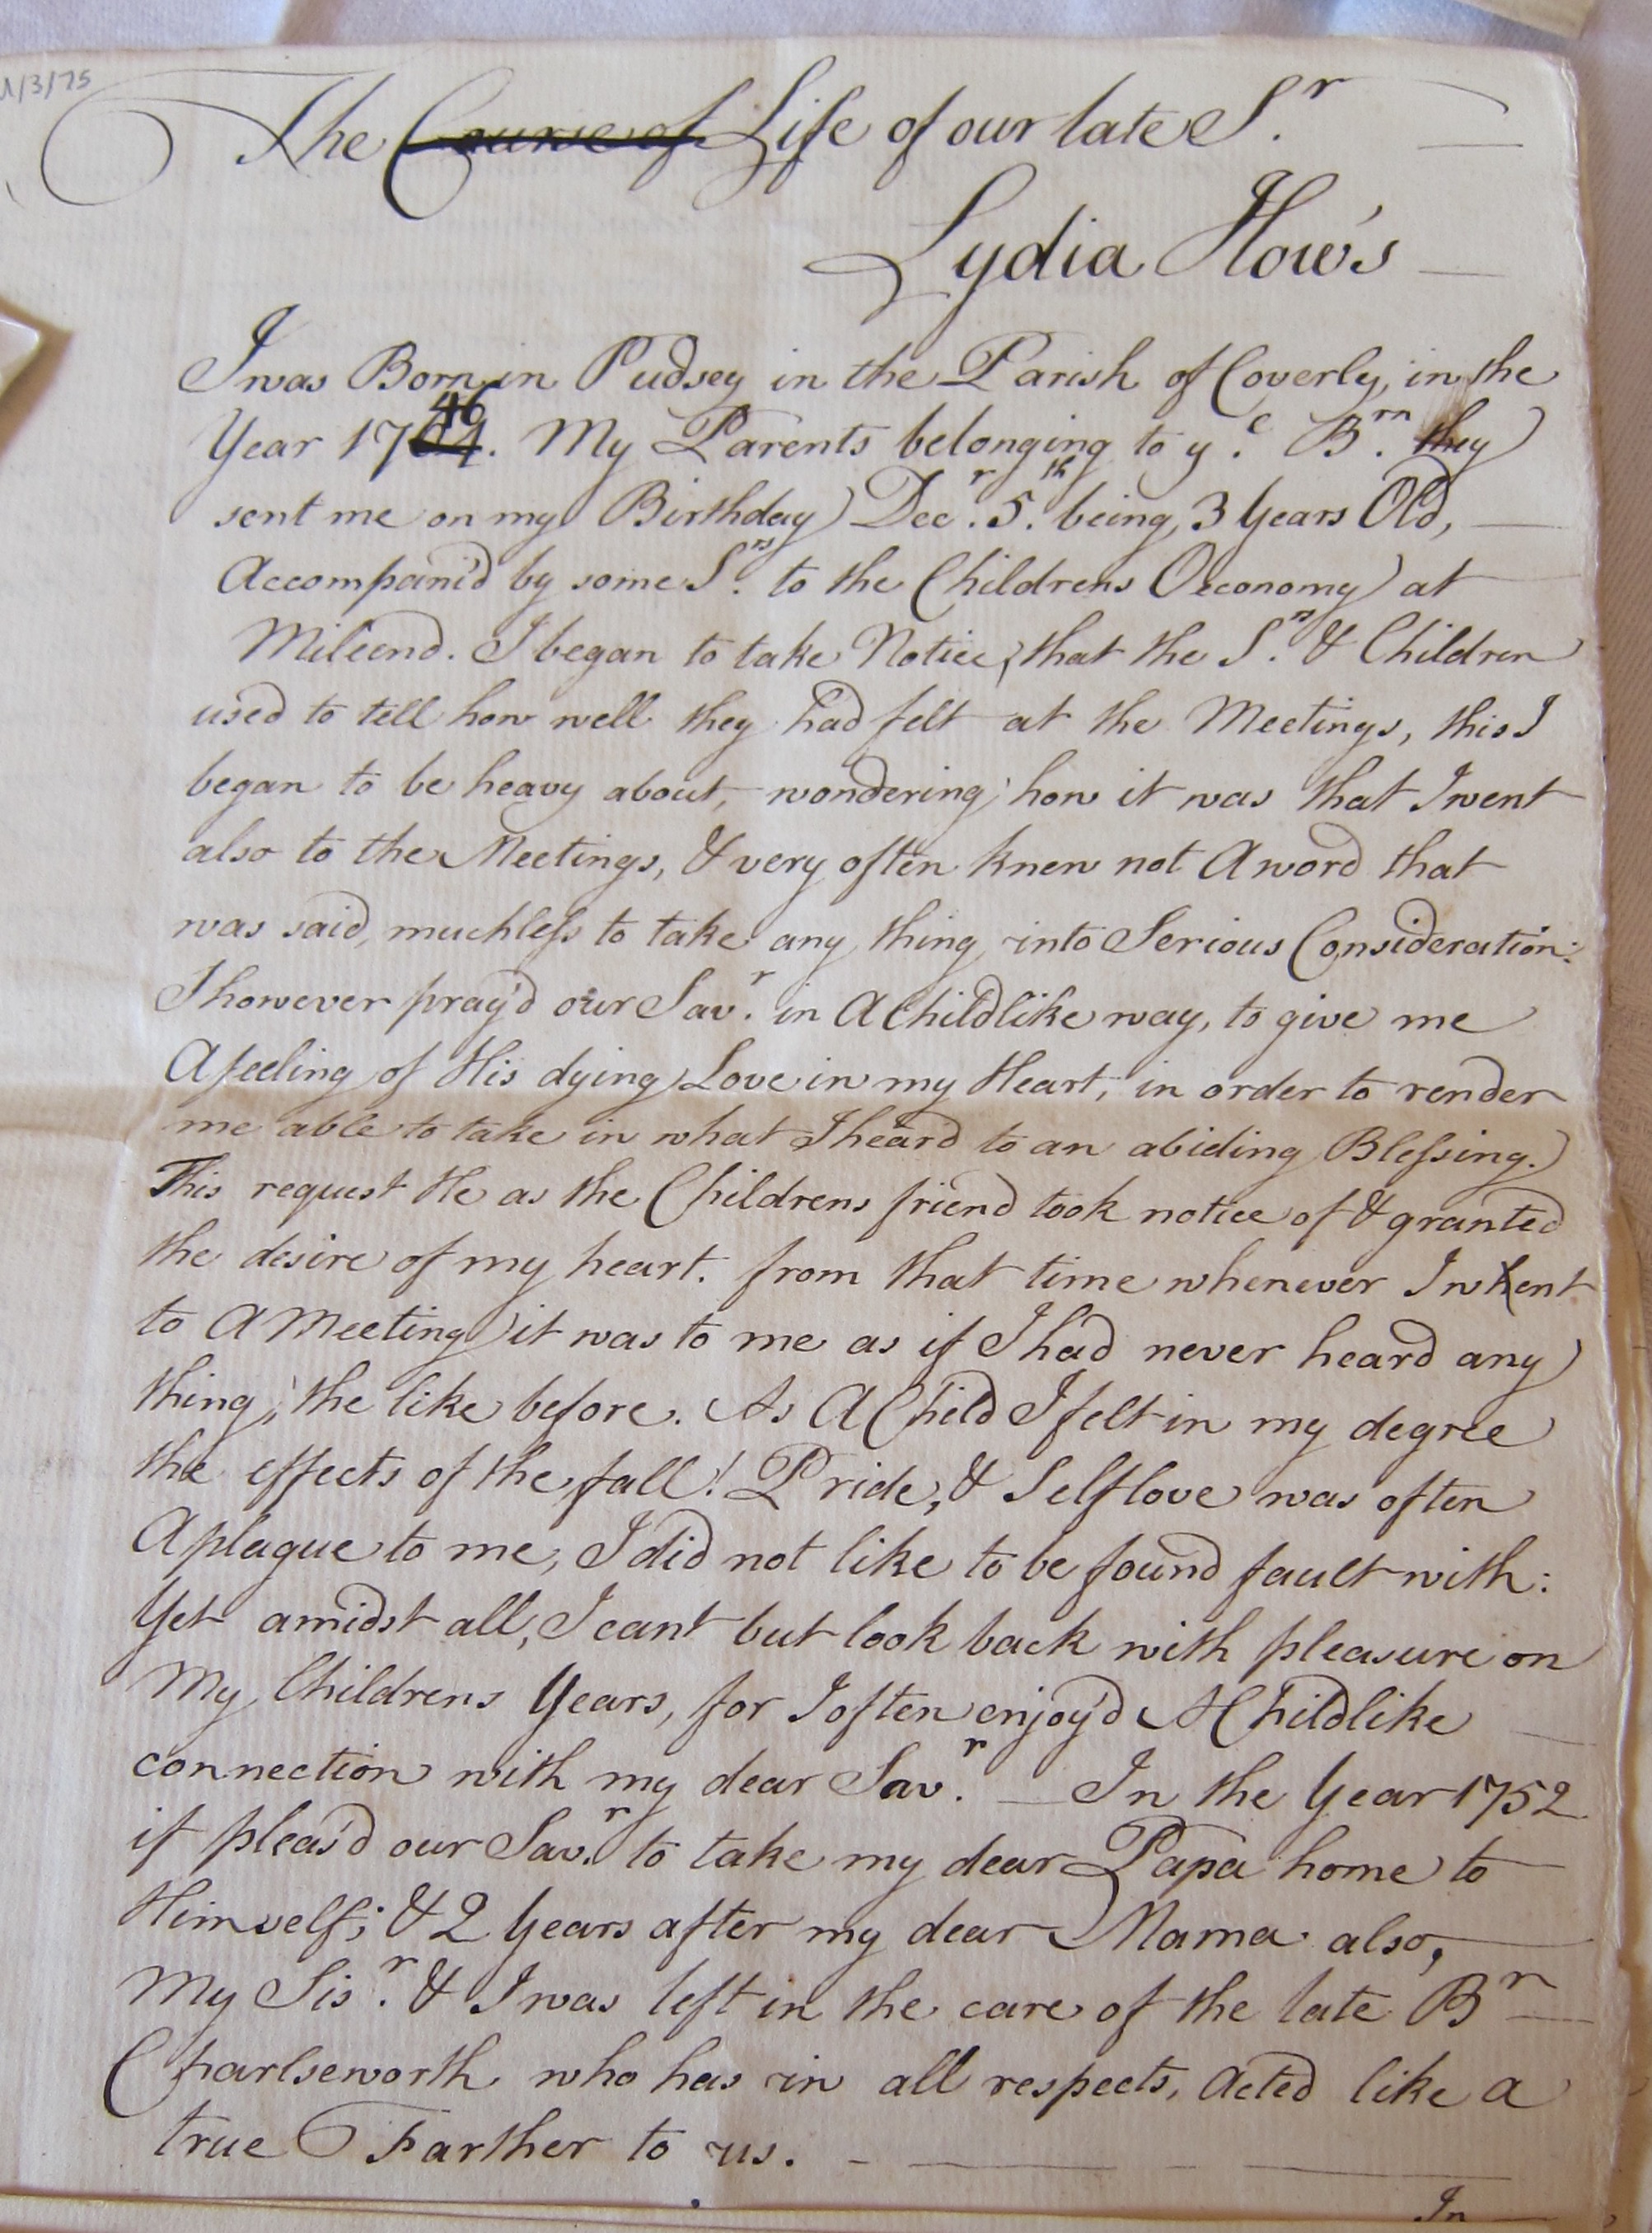 1/3/75
The Course of Life of our late Sr.
Lydia How's
I was Born in Pudsey in the Parish of Coverly, in the
46
Year 1764. My Parents belonging to ye. Brn. they
sent me on my Birthday Decr. 5th. being, 3 Years Old,
Accompani'd by some Srs. to the Childrens Oeconomy at
Mileend. I began to take Notice, that the Srs. & Children
used to tell how well they had felt at the Meetings, this I
began to be heavy about, wondering how it was that I went
also to the Meetings, & very often knew not A word that
was said, muchless to take any thing into Serious Consideration:
I however pray'd our Savr. in A Childlike way, to give me
A feeling of His dying Love in my Heart, in order to render
me able to take in what I heard to an abiding Blessing.
This request He as the Childrens friend took notice of & granted
the desire of my heart. from that time whenever I went
to A Meeting it was to me as if I had never heard any
thing, the like before. As A Child I felt in my degree
the effects of the fall! Pride, & Selflove was often
A plague to me, I did not like to be found fault with:
Yet amidst all, I cant but look back with pleasure on
My Childrens Years, for I often enjoy'd A Childlike
connection with my dear Savr. — In the Year 1752
it pleas'd our Savr. to take my dear Papa home to
Himself; & 2 Years after my dear Mama also,
My Sisr. & I was left in the care of the late Br
Charlseworth who has in all respects, Acted like a
true Farther to us.
In